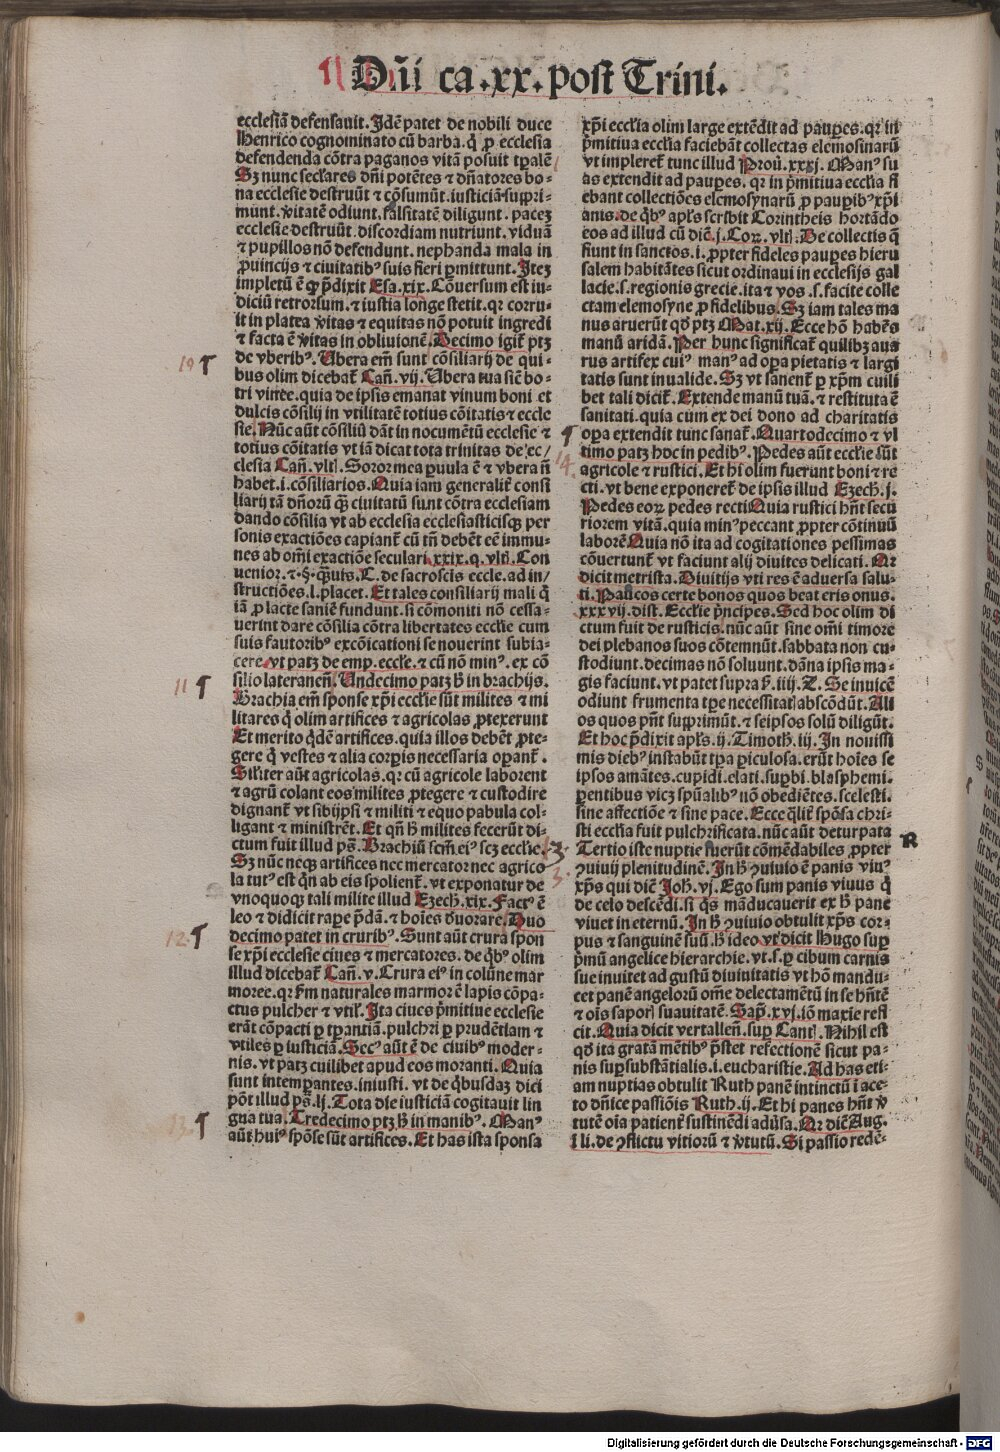 Dñi ca.xx.post Trini.
ecclesiã defensauit. Idẽ patet de nobili duce
Henrico cognominato cũ barba. q̃ ꝓ ecclesia
defendenda cõtra paganos vitã posuit tꝑalẽ
Sꝫ nunc sec̃lares dñi potẽtes ⁊ dñatores bo-
na ecclesie destruũt ⁊ cõsumũt. iusticiã supꝑri-
munt. v̾itatẽ odiunt. falsitatẽ diligunt. pacez
ecclesie destruũt. discordiam nutriunt. viduã
⁊ pupillos nõ defendunt. nephanda mala in
ꝓuincijs ⁊ ciuitatibꝰ suis fieri ꝑmittunt. Itez
impletũ ẽ qď p̃dixit Esa.xix. Cõuersum est iu-
diciũ retrorsum. ⁊ iustia longe stetit. qr corru-
it in platea v̾itas ⁊ equitas nõ potuit ingredi
⁊ facta ẽ v̾itas in obliuionẽ. Decimo igit̃ ptꝫ
10 ¶ de vberibꝰ. Ubera em̃ sunt cõsiliarij de qui-
bus olim dicebat̃ Cañ. vij. Ubera tua sic̃ bo-
tri vinee. quia de ipsis emanat vinum boni et
dulcis cõsilij in vtilitatẽ totius cõitatis ⁊ eccle
sie. Nũc aũt cõsiliũ dãt in nocumẽtũ ecclesie ⁊
totius cõitatis vt iã dicat tota trinitas de ec/
clesia Cañ. vltĩ. Soror mea ꝑuula ẽ ⁊ vbera ñ
habet .i. cõsiliarios. Quia iam generalit̃ consi
liarij tã dñorũ q̃ꝫ ciuitatũ sunt cõtra ecclesiam
dando cõsilia vt ab ecclesia ecclesiasticisqꝫ per
sonis exactiões capiant̃ cũ tñ debẽt eẽ immu-
nes ab om̃i exactiõe seculari .xxix. q. vltĩ. Con
uenior. ⁊ .§. q̃uis. C. de sacrosctis eccle. ad in/
structiões. l. placet. Et tales consiliarij mali q̃
iã ꝓ lacte saniẽ fundunt. si cõmoniti nõ cessa-
uerint dare cõsilia cõtra libertates ecclĩe cum
suis fautoribꝰ excõicationi se nouerint subia-
cere. vt patꝫ de emp. eccle. ⁊ cũ nõ minꝰ. ex cõ
11 ¶ silio lateraneñ. Undecimo patꝫ h̃ in brachijs.
Brachia em̃ sponse xp̃i ecclĩe sũt milites ⁊ mi
litares q̃ olim artifices ⁊ agricolas ꝓtexerunt
Et merito q̃dẽ artifices. quia illos debẽt ꝓte-
gere q̃ vestes ⁊ alia corꝑis necessaria oꝑant̃.
Siliter aũt agricolas. qr cũ agricole laborent
⁊ agrũ colant eos milites ꝓtegere ⁊ custodire
dignant̃ vt sibijpsi ⁊ militi ⁊ equo pabula col-
ligant ⁊ ministrẽt. Et qñ h̃ milites fecerũt di-
ctum fuit illud ps̃. Brachiũ scm̃. eiꝰ scꝫ ecclĩe.
Sꝫ nũc neqꝫ artifices nec mercator nec agrico
la tutꝰ est q̃n ab eis spolient̃. vt exponatur de
vnoquoqꝫ tali milite illud Ezech. xix. Factꝰ ẽ
leo ⁊ didicit raꝑe p̃dã. ⁊ hoĩes d̃uorare. Duo
12 ¶ decimo patet in cruribꝰ. Sunt aũt crura spon
se xp̃i ecclesie ciues ⁊ mercatores. de q̃bꝰ olim
illud dicebat̃ Cañ. v. Crura eiꝰ in colũne mar
moree. qr fm̃ naturales marmor ẽ lapis cõpa-
ctus pulcher ⁊ vtil̃. Ita ciues p̃mitiue ecclesie
erãt cõpacti ꝑ tꝑantiã. pulchri ꝑ prudẽtiam ⁊
vtiles ꝑ iusticiã. Secꝰ aũt ẽ de ciuibꝰ moder-
nis. vt patꝫ cuilibet apud eos moranti. Quia
sunt intemꝑantes. iniusti. vt de q̃busdaz dici
põt illud ps̃. lj. Tota die iusticiã cogitauit lin
13 ¶ gua tua. Tredecimo ptꝫ h̃ in manibꝰ. Manꝰ
aũt huiꝰ spõse sũt artifices. Et has ista sponsa
xp̃i ecclĩa olim large extẽdit ad pauꝑes. qr in
p̃mitiua ecclĩa faciebãt collectas elemosinarũ
vt impleret̃ tunc illud Proũ. xxxj. Manꝰ su
as extendit ad pauꝑes. qr in p̃mitiua ecclĩa fi
ebant collectiões elemosynarũ ꝓ pauꝑibꝰ xp̃i
anis. de q̃bꝰ apl̃s scribit Corintheis hortãdo
eos ad illud cũ dic̃ .j. Corr. vltĩ. De collectis q̃
fiunt in sanctos .i. ꝓpter fideles pauꝑes hieru
salem habitãtes sicut ordinaui in ecclesijs gal
lacie .s. regionis grecie. ita ⁊ vos .s. facite colle
ctam elemosyne ꝓ fidelibus. Sꝫ iam tales ma
nus aruerũt qď ptꝫ Mat. xij. Ecce hõ habẽs
manũ aridã. Per hunc significat̃ quilibꝫ aua
rus artifex cuiꝰ manꝰ ad oꝑa pietatis ⁊ largi
tatis sunt inualide. Sꝫ vt sanent̃ ꝑ xp̃m cuili
bet tali dicit̃. Extende manũ tuã. ⁊ restituta ẽ
sanitati. quia cum ex dei dono ad charitatis
¶ oꝑa extendit tunc sanat̃. Quartodecimo ⁊ vl
14 timo patꝫ hoc in pedibꝰ. Pedes aũt ecclĩe sũt
agricole ⁊ rustici. Et hi olim fuerunt boni ⁊ re
cti. vt bene exponeret̃ de ipsis illud Ezech. j.
Pedes eorꝫ pedes recti. Quia rustici hñt secu
riorem vitã. quia minꝰ peccant ꝓpter cõtinuũ
laborẽ. Quia nõ ita ad cogitationes pessimas
cõuertunt̃ vt faciunt alij diuites delicati. Ur
dicit metrista. Diuitijs vti res ẽ aduersa salu-
ti. Paucos certe bonos quos beat eris onus.
xxxvij. dist. Ecclĩe p̃ncipes. Sed hoc olim di
ctum fuit de rusticis. nũc aũt sine om̃i timore
dei plebanos suos cõtemnũt. sabbata non cu-
stodiunt. decimas nõ soluunt. dãna ipsis ma-
gis faciunt. vt patet supra ẽ. iiij. T. Se inuicẽ
odiunt frumenta tꝑe necessitatĩ abscõdũt. Ali
os quos pñt supprimũt. ⁊ seipsos solũ diligũt.
Et hoc p̃dixit apl̃s .ij. Timoth. iij. In nouissi
mis diebꝰ instabũt tꝑa ꝑiculosa. erũt hoĩes se
ipsos amãtes. cupidi. elati. suꝑbi. blasphemi.
ꝑentibus vicꝫ spũalibꝰ nõ obediẽtes. scelesti.
sine affectiõe ⁊ sine pace. Ecce q̃lit̃ spõsa chri-
sti ecclĩa fuit pulchrificata. nũc aũt deturpata
R
3. Tertio iste nuptie fuerũt cõmẽdabiles ꝓpter
ꝯuiuij plenitudinẽ. In h̃ ꝯuiuio ẽ panis viuꝰ
xp̃s qui dic̃ Joh. vj. Ego sum panis viuus q̃
de celo descẽdi. si q̃s mãducauerit ex h̃ pane
viuet in eternũ. In h̃ ꝯuiuio obtulit xp̃s cor-
pus ⁊ sanguinẽ suũ. h̃ ideo vt dicit Hugo suꝑ
p̃mũ angelice hierarchie. vt .s. ꝑ cibum carnis
sue inuitet ad gustũ diuinitatis vt hõ mandu-
cet panẽ angelorũ om̃e delectamẽtũ in se hñtẽ
⁊ oĩs saporĩ suauitatẽ. Sap̃. xvj. iõ maxie refi
cit. Quia dicit vertalleñ. suꝑ Cantĩ. Nihil est
qď ita gratã mẽtibꝰ p̃stet refectionẽ sicut pa-
nis suꝑsubstãtialis .i. eucharistie. Ad has eti-
am nuptias obtulit Ruth panẽ intinctũ i ace-
to dñice passiõis Ruth. ij. Et hi panes hñt v̾
tutẽ oĩa patient̃ sustinẽdi adũsa. Ur dic̃ Aug.
i li. de ꝯflictu vitiorũ ⁊ v̾tutũ. Si passio redẽ-
Digitalisierung gefördert durch die Deutsche Forschungsgemeinschaft - DFG